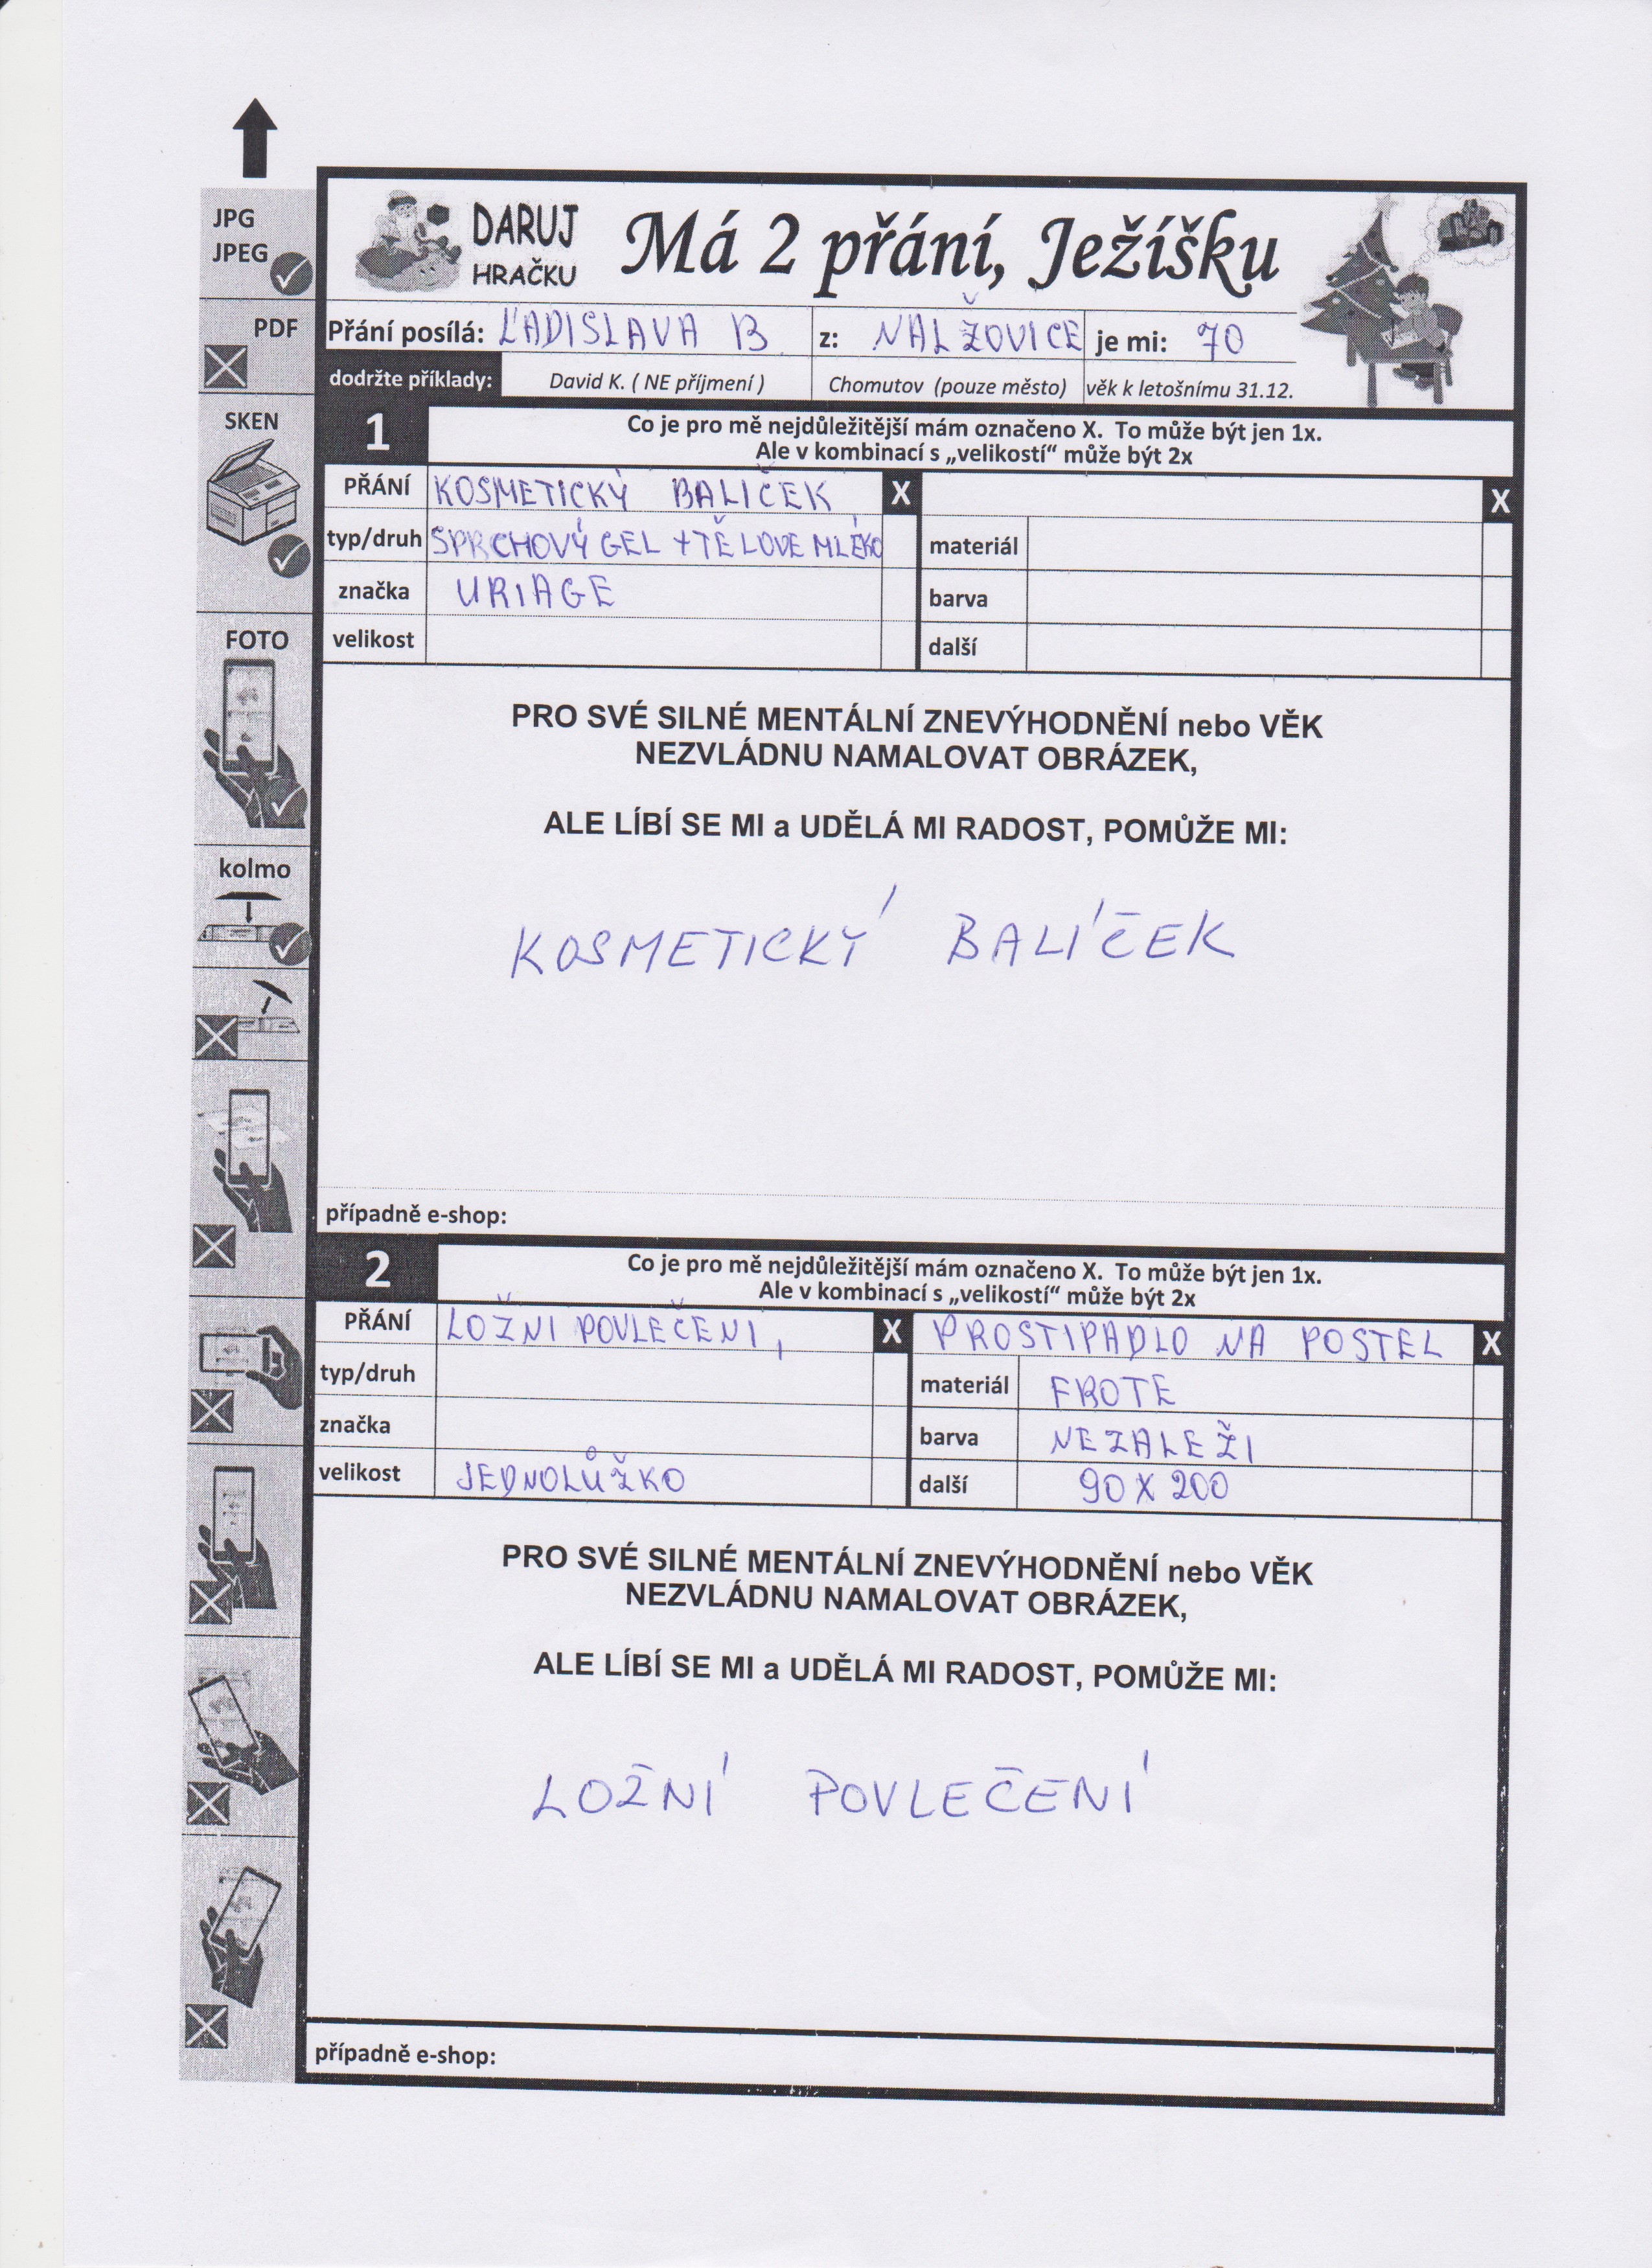 JPG
JPEG
PDF
SKEN
FOTO
kolmo
DARUJ
HRAČKU
Má 2 přání, Ježíšku
Přání posílá: ĽADISLAVA B. z: NALŽOVICE je mi: 70
dodržte příklady: David K. ( NE příjmení ) Chomutov (pouze město) věk k letošnímu 31.12.
1 Co je pro mě nejdůležitější mám označeno X. To může být jen 1x.
Ale v kombinací s „velikostí“ může být 2x
PŘÁNÍ KOSMETICKÝ BALIČEK X X
typ/druh SPRCHOVÝ GEL +TĚLOVE MLÉKO materiál
značka URIAGE barva
velikost další
PRO SVÉ SILNÉ MENTÁLNÍ ZNEVÝHODNĚNÍ nebo VĚK
NEZVLÁDNU NAMALOVAT OBRÁZEK,
ALE LÍBÍ SE MI a UDĚLÁ MI RADOST, POMŮŽE MI:
KOSMETICKÝ BALÍČEK
případně e-shop:
2 Co je pro mě nejdůležitější mám označeno X. To může být jen 1x.
Ale v kombinací s „velikostí“ může být 2x
PŘÁNÍ LOŽNI POVLEČENI, X PROSTIPADLO NA POSTEL X
typ/druh materiál FROTE
značka barva NEZALEŽI
velikost JEDNOLŮŽKO další 90 X 200
PRO SVÉ SILNÉ MENTÁLNÍ ZNEVÝHODNĚNÍ nebo VĚK
NEZVLÁDNU NAMALOVAT OBRÁZEK,
ALE LÍBÍ SE MI a UDĚLÁ MI RADOST, POMŮŽE MI:
LOŽNÍ POVLEČENÍ
případně e-shop: